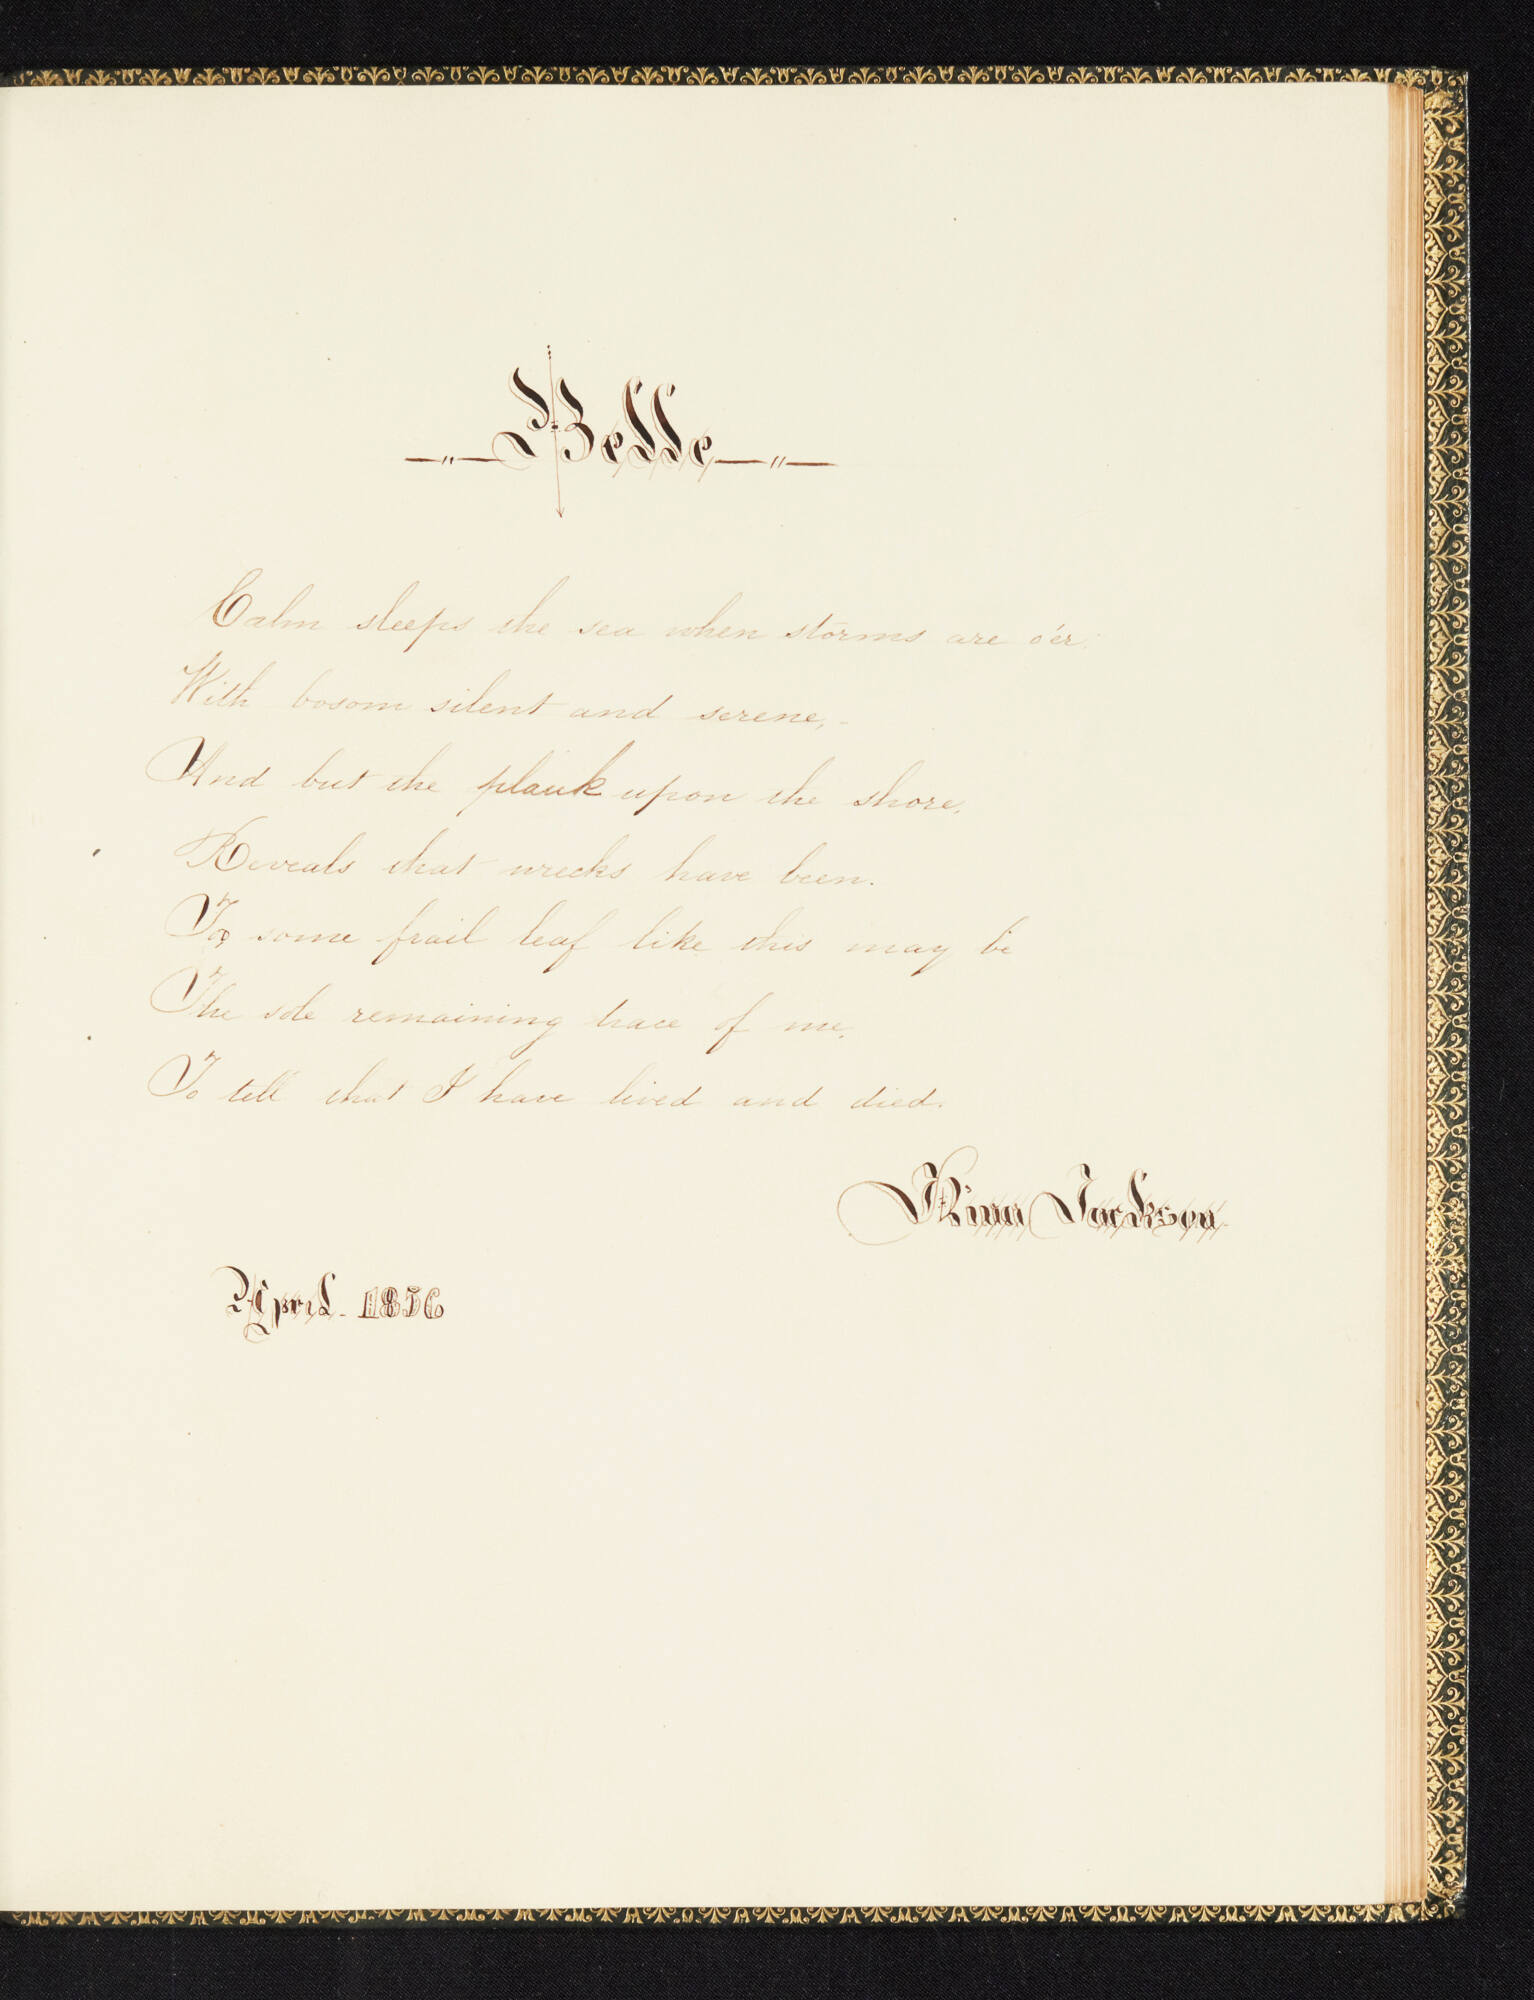 — " — Belle — " —
Calm sleeps the sea when storms are o'er.
With bosom silent and serene, -
And but the plank upon the shore,
Reveals that wrecks have been.
So some frail leaf like this may be
The sole remaining trace of me,
To tell that I have lived and died.
Jackson.
April. 1856